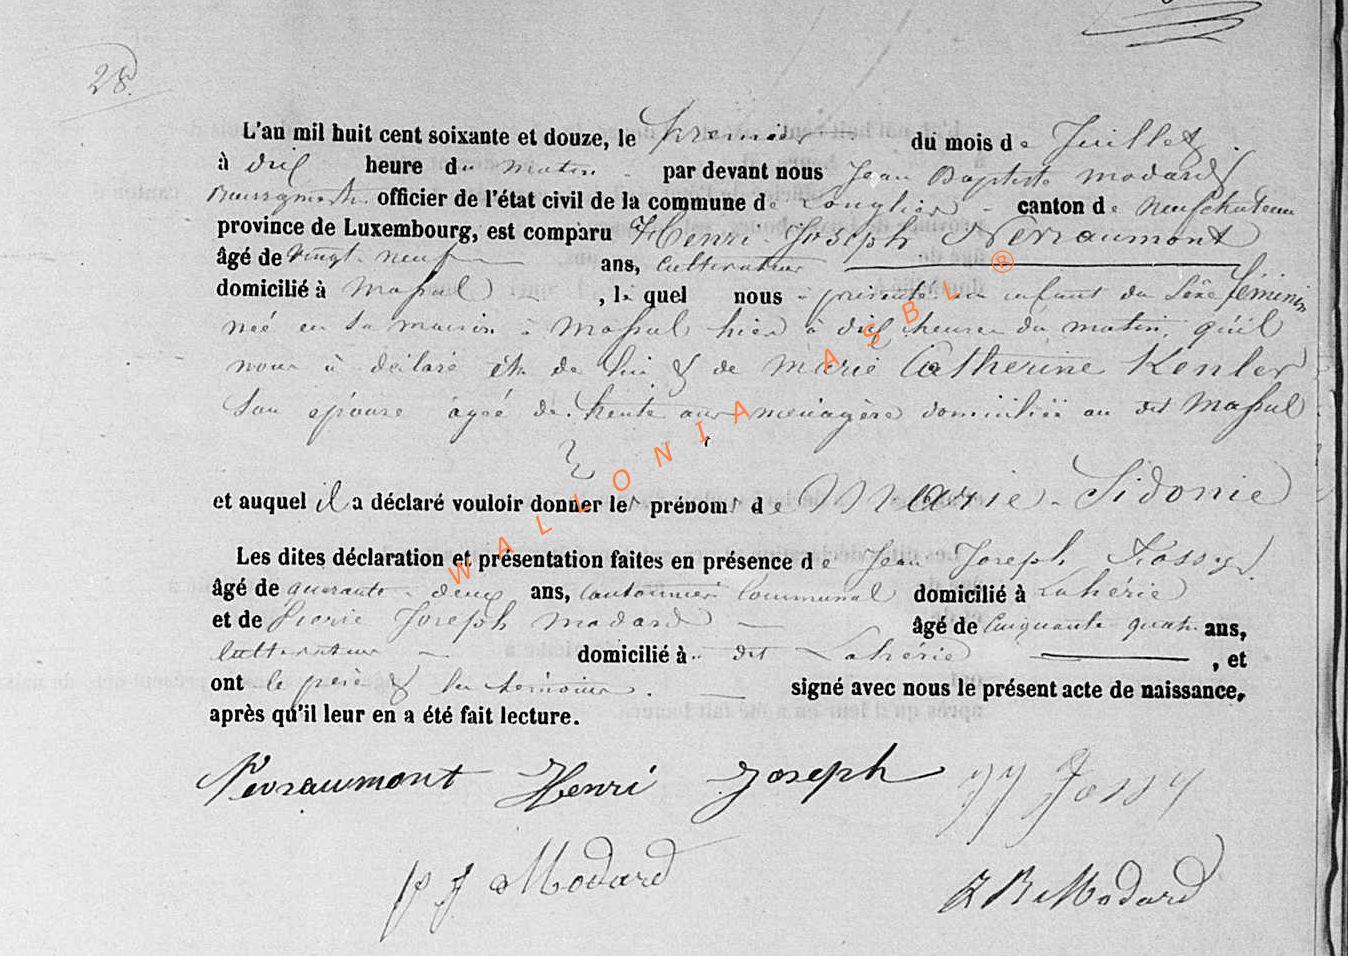 28.
L'an mil huit cent soixante et douze, le premier du mois de Juillet.
à dix heure du matin par devant nous Jean Baptiste modard
Bourgmestre officier de l'état civil de la commune de Longlier canton de neufchateau
province de Luxembourg, est comparu Henri Joseph Nevraumont
âgé de vingt neuf ans, cultivateur
domicilié à massul, lequel nous a présenté un enfant du Sexe féminin
neé en sa maison à massul hier à dix heures du matin, qu'il
nous à déclaré être de lui & de marie Catherine Kenler
Son épouse ageé de trente ans menagère domiciliée au dit massul
et auquel il a déclaré vouloir donner les prénoms de Marie-Sidonie
Les dites déclaration et présentation faites en présence de Jean Joseph
âgé de quarante-deux ans, cantonnier communal domicilié à Lahérie
et de Pierre Joseph modard âgé de Cinquante quatre ans,
Cultivateur domicilié à dit Lahérie, et
ont le père & les témoins. signé avec nous le présent acte de naissance,
après qu'il leur en a été fait lecture.
Nevraumont Henri Joseph JJ
p J Modard J B Modard
WALLONIA ASBL ®